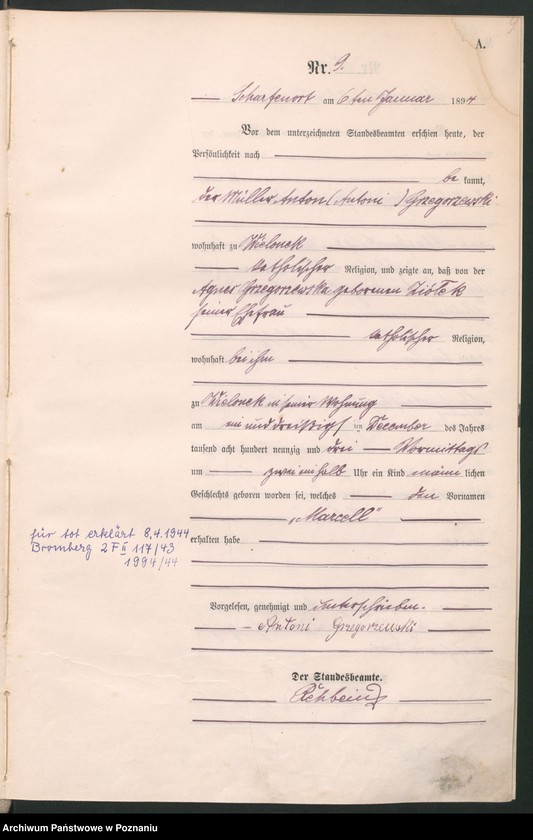 A.
Nr. 9.
Scharfenort am 6ten Januar 1894
Vor dem unterzeichneten Standesbeamten erschien heute, der
Persönlichkeit nach
be kannt,
der Müller Anton (Antoni) Grzegorzewski
wohnhaft zu Wielonek
katholischer Religion, und zeigte an, daß von der
Agnes Grzegorzewska geborenen Ziółek
seiner Ehefrau
katholischer Religion,
wohnhaft bei ihm
zu Wielonek in seiner Wohnung
am ein und dreißigsten December des Jahres
tausend acht hundert neunzig und drei Vormittags
um zwei ein halb Uhr ein Kind männlichen
Geschlechts geboren worden sei, welches den Vornamen
„Marcell"
erhalten habe
für tot erklärt 8.4.1944
Bromberg 2 F II 117/43
1994/44
Vorgelesen, genehmigt und unterschrieben.
Antoni Grzegorzewski
Der Standesbeamte.
Rehbein
Archiwum Państwowe w Poznaniu